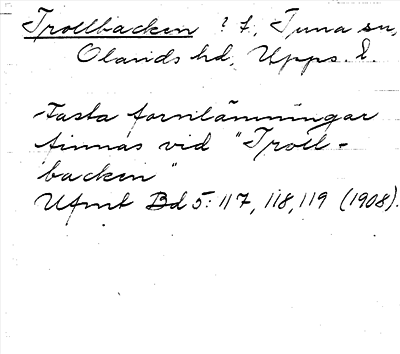 Trollbacken ? t, Tuna sn,
Olands hd, Upps. l.
Fasta fornlämningar
finnas vid "Troll-
backen"
Ufmt Bd 5: 117, 118, 119 (1908).